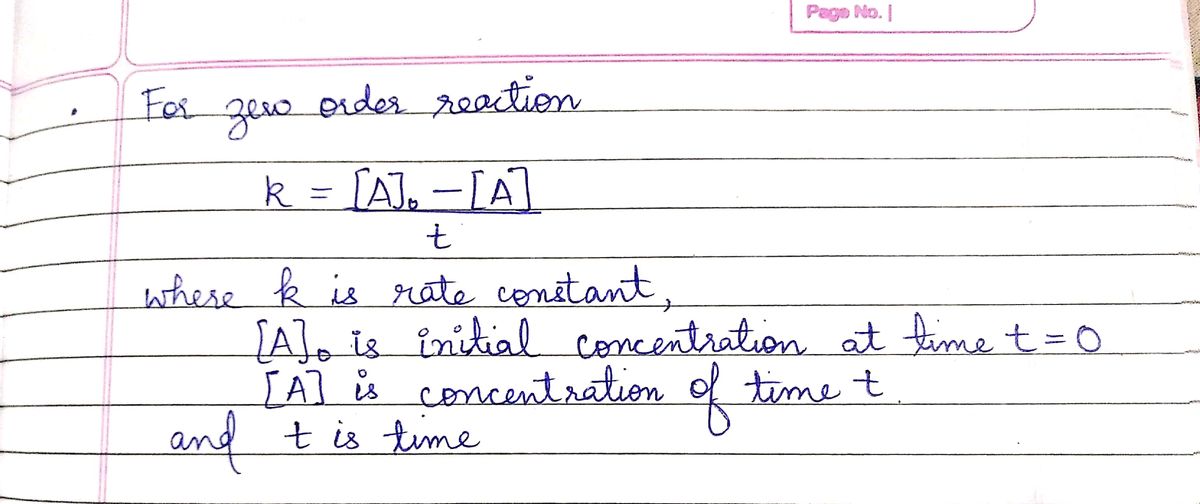 Page No. |
. For zero order reaction
k = [A]₀ – [A]
t
where k is rate constant,
[A]₀ is initial concentration at time t = 0
[A] is concentration of time t.
and t is time